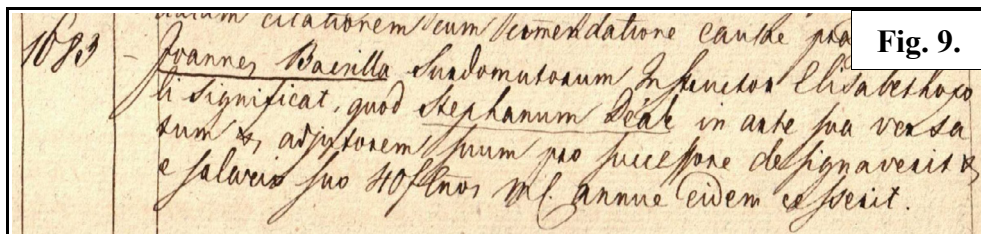 citationem cum commendatione causae
Fig. 9.
1083 – Joannes Barilla Surdomutorum Instructor Elisabethopo
li significat, quod Stephanum Deák in arte sua versa
tum &, adjutorem suum pro successore designaverit &
e salario suo 40 flnos Ml. annue eidem cesserit.